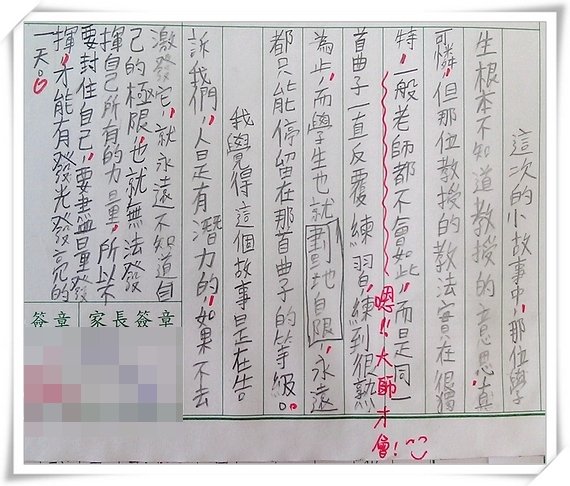 這次的小故事中,那位學
生根本不知道教授的意思,真
可憐,但那位教授的教法實在很獨
特,一般老師都不會如此,而是同一
嗯!!大師才會!
首曲子一直反覆練習,練到很熟
為止,而學生也就劃地自限,永遠
都只能停留在那首曲子的等級。
我覺得這個故事是在告
訴我們,人是有潛力的,如果不去
激發它,就永遠不知道自
己的極限,也就無法發
揮自己所有的力量,所以不
要封住自己,要盡量發
揮,才能有發光發亮的
一天。
家長簽章
簽章